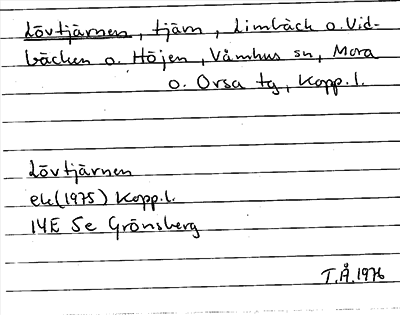 Lövtjärnen, tjärn, Limbäck o. Vid-
bäcken o. Höjen, Våmhus sn, Mora
o. Orsa tg, Kopp.l.
Lövtjärnen
ek(1975) Kopp.l.
14E 5e Grönsberg
T.Å.1976